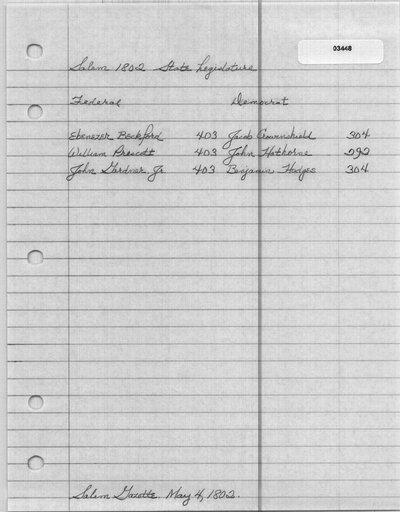 03448
Salem 1802 State Legislature
Federal Democrat
Ebenezer Beckford 403 Jacob Crowninshield 304
William Prescott 403 John Hathorne 292
John Gardner Jr. 403 Benjamin Hodges 304
Salem Gazette. May 4, 1802.